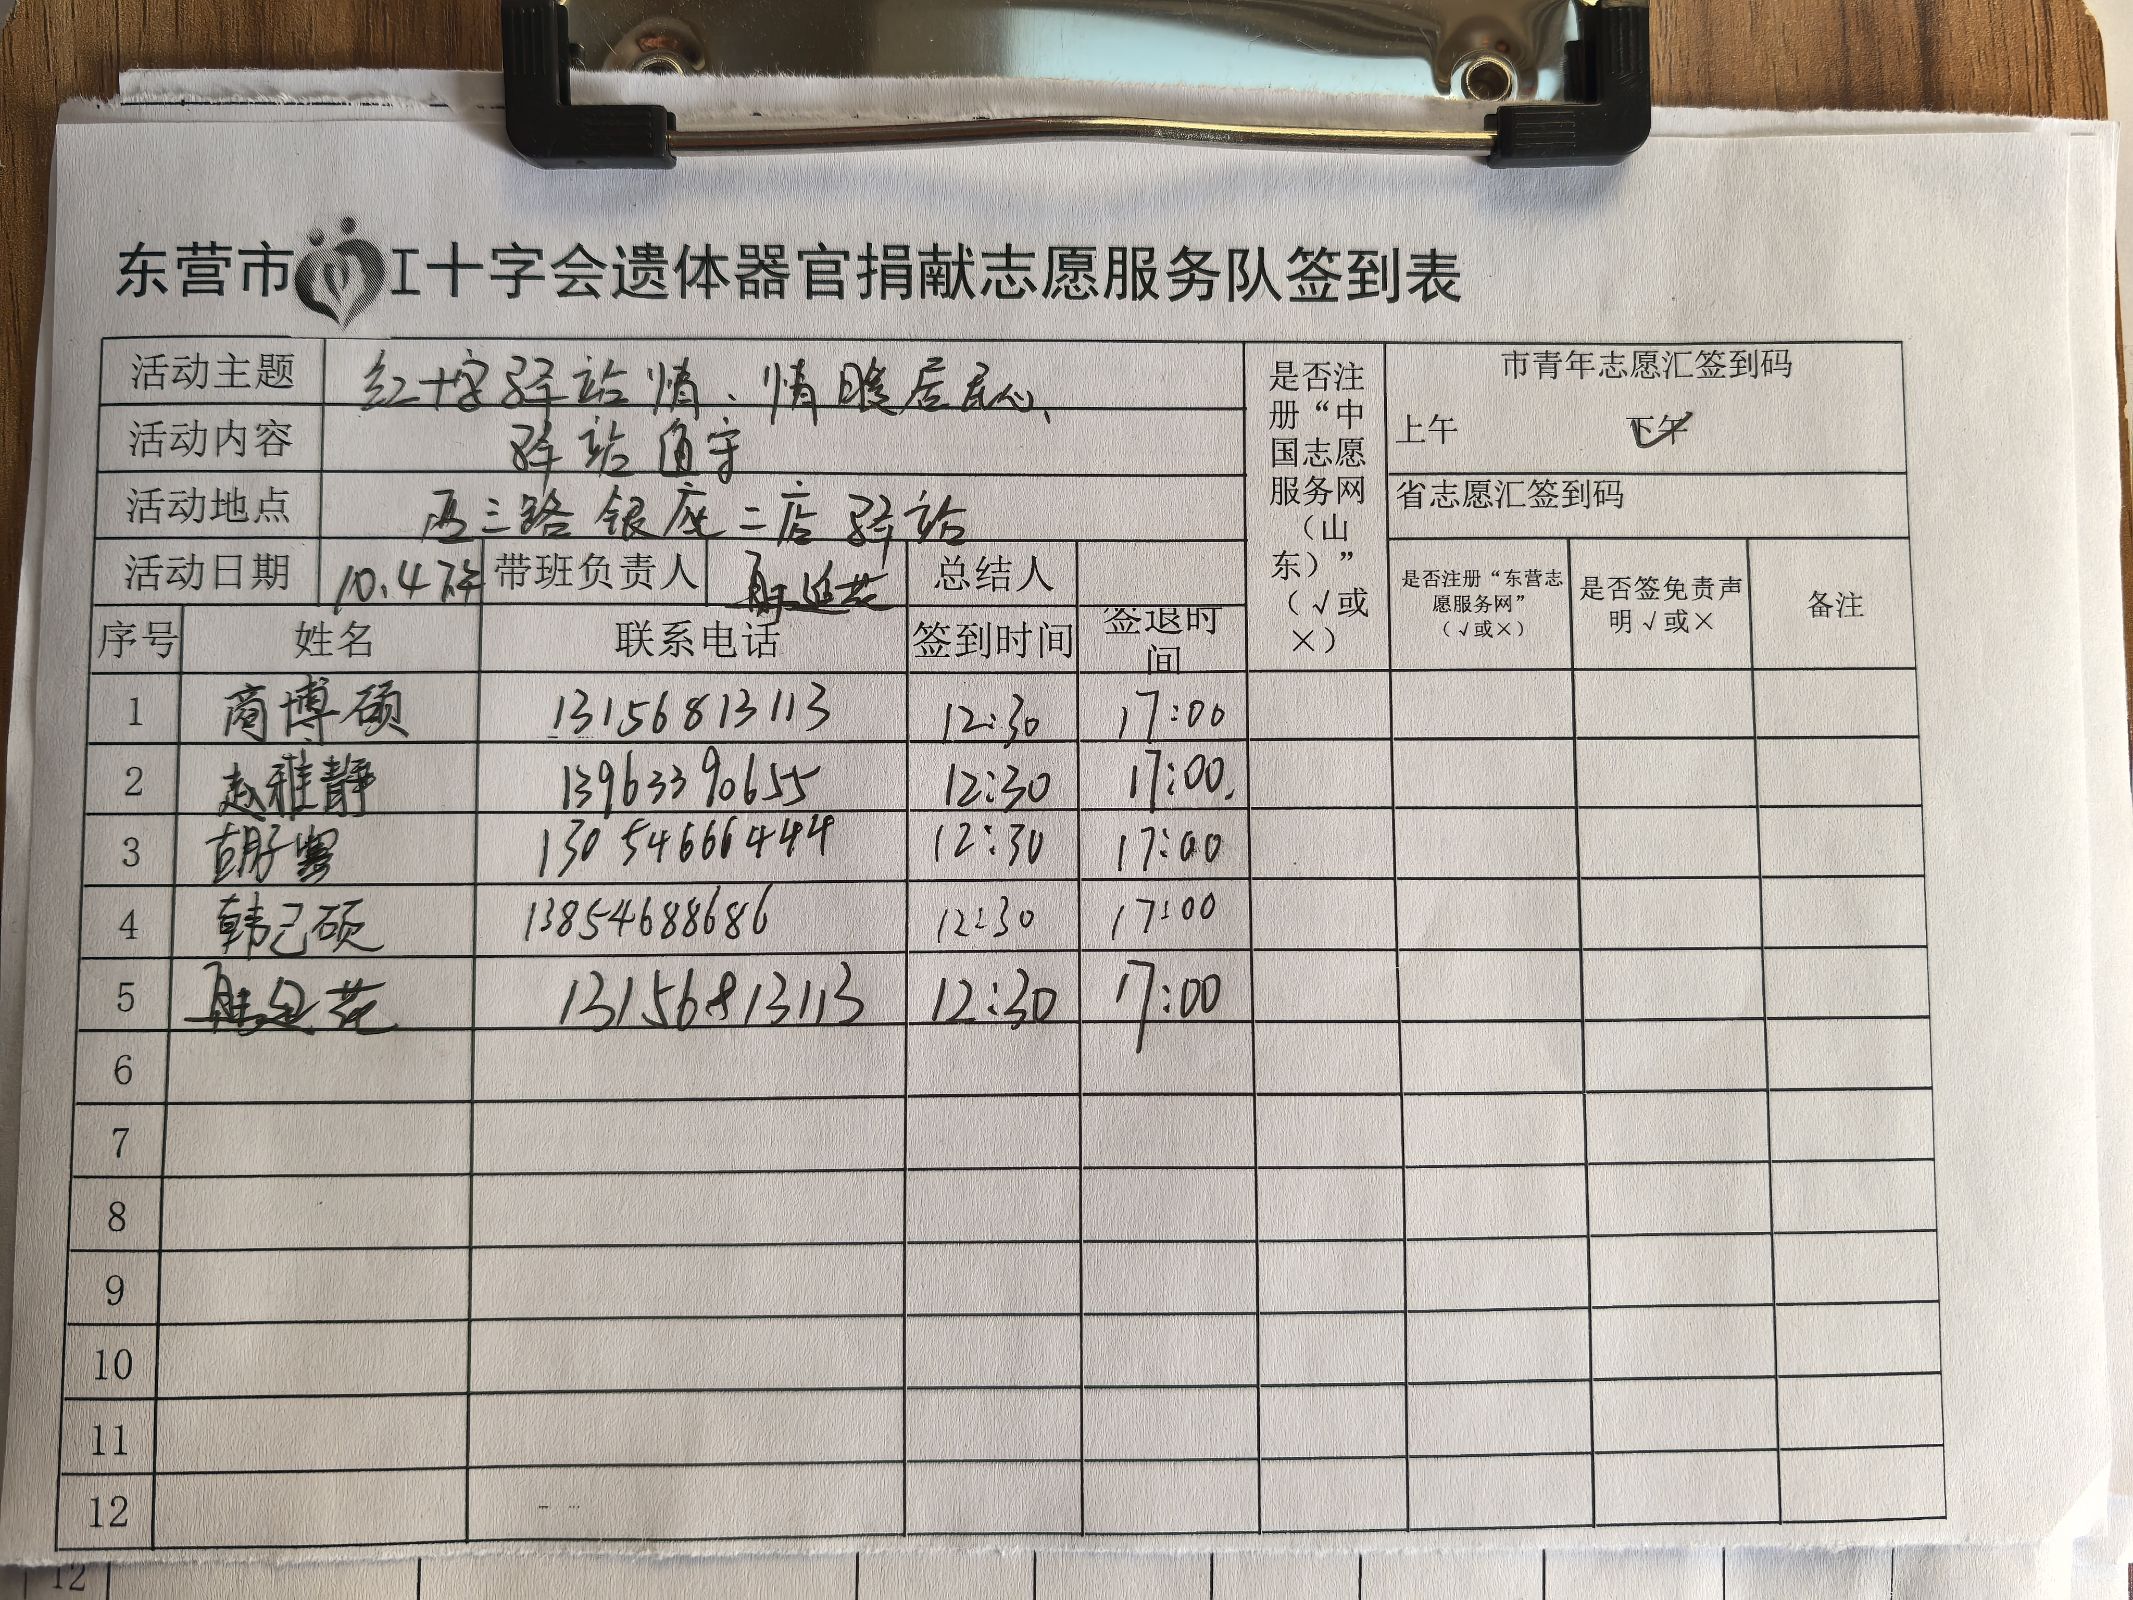 东营市红十字会遗体器官捐献志愿服务队签到表
活动主题 红十字驿站情、情暖居民心
活动内容 驿站值守
活动地点 西三路银座二店驿站
活动日期 10.4下午 带班负责人 总结人
是否注册“中国志愿服务网（山东）”（√或×）
市青年志愿汇签到码
上午 下午 ✓
省志愿汇签到码
是否注册“东营志愿服务网”（√或×） 是否签免责声明√或× 备注
序号 姓名 联系电话 签到时间 签退时间
1 商博硕 13156813113 12:30 17:00
2 赵雅静 13963390655 12:30 17:00.
3 胡 13054666444 12:30 17:00
4 韩己硕 13854688686 12:30 17:00
5 13156813113 12:30 17:00
6
7
8
9
10
11
12
12